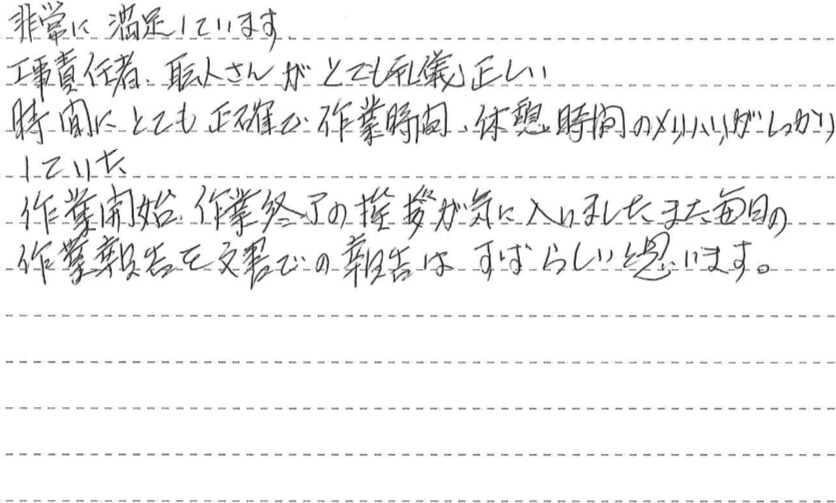 非常に満足しています。
工事責任者、職人さんがとても礼儀正しい
時間にとても正確で作業時間、休憩時間のメリハリがしっかり
していた
作業開始、作業終了の挨拶が気に入りました。また毎日の
作業報告を文書での報告はすばらしいと思います。